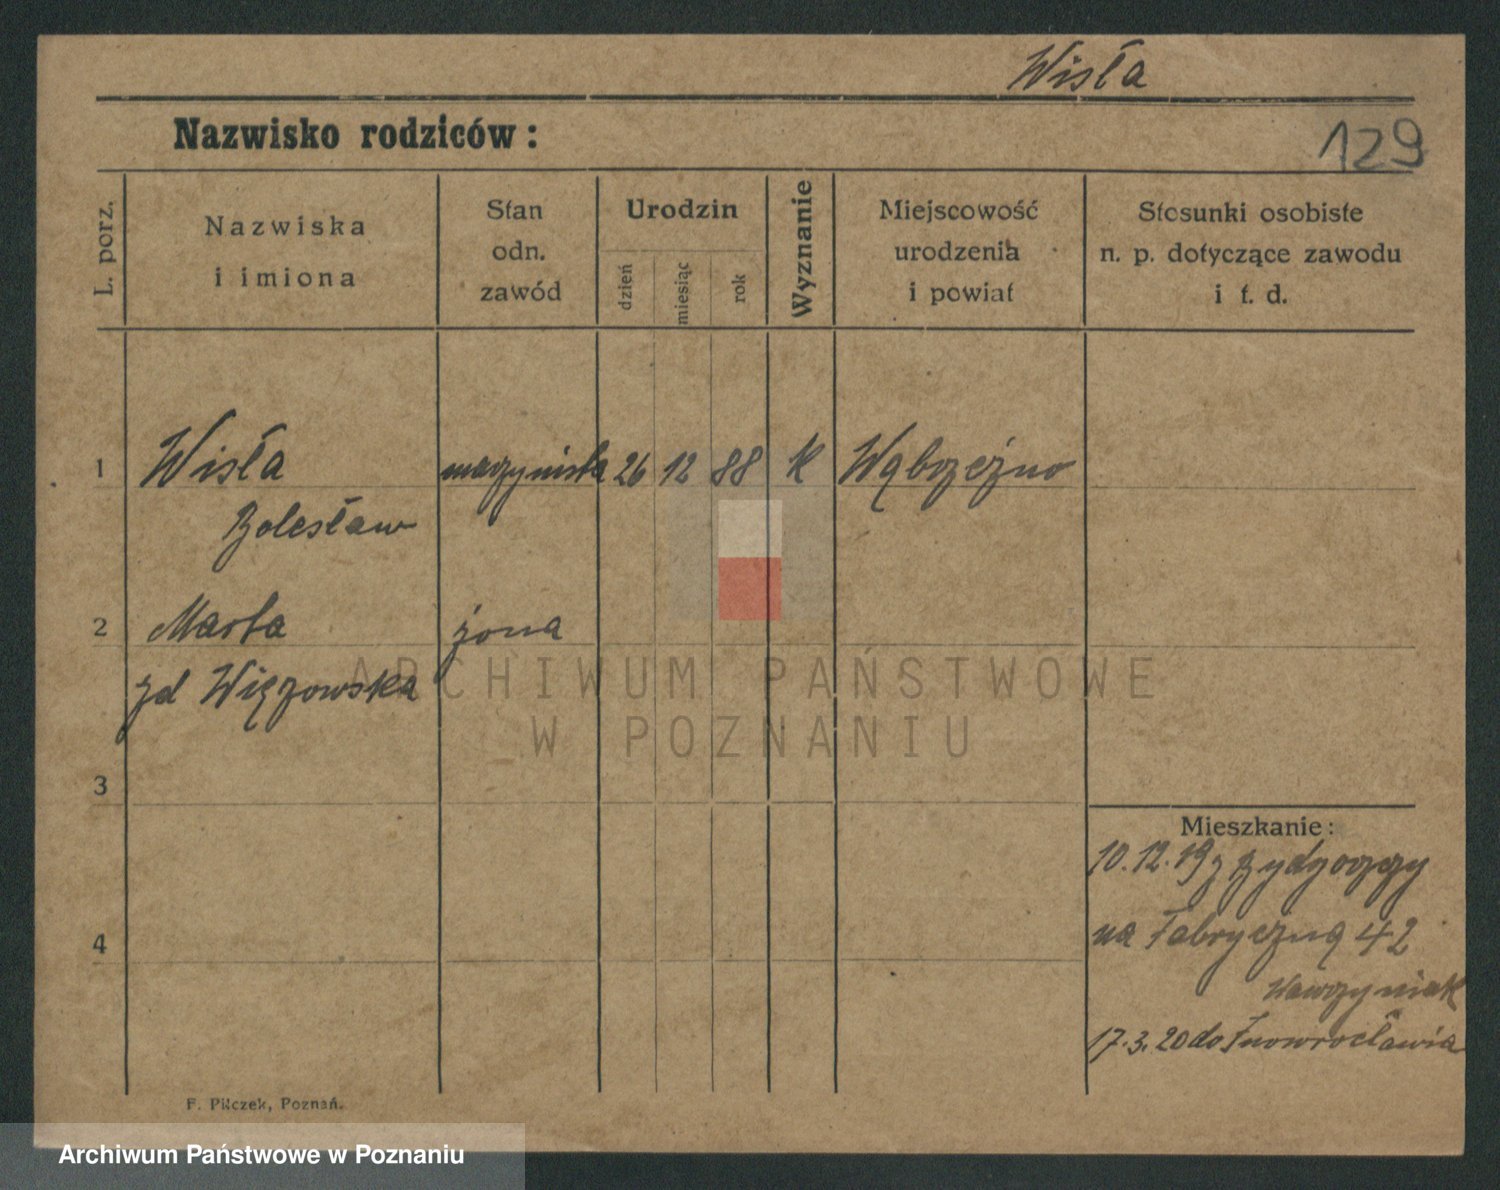 Wisła
Nazwisko rodziców:
129
L. porz.
Nazwiska
i imiona
Stan
odn.
zawód
Urodzin
dzień
miesiąc
rok
Wyznanie
Miejscowość
urodzenia
i powiat
Stosunki osobiste
n. p. dotyczące zawodu
i t. d.
1 Wisła maszynista 26 12 88 K Wąbrzeźno
Bolesław
2 Marta żona
zd Więzowska
ARCHIWUM PAŃSTWOWE
W POZNANIU
3
Mieszkanie:
10.12.19 z Bydgoszczy
4
na Fabryczną 42
Wawrzyniak
17.3.20 do Inowrocławia
F. Pilczek, Poznań.
Archiwum Państwowe w Poznaniu